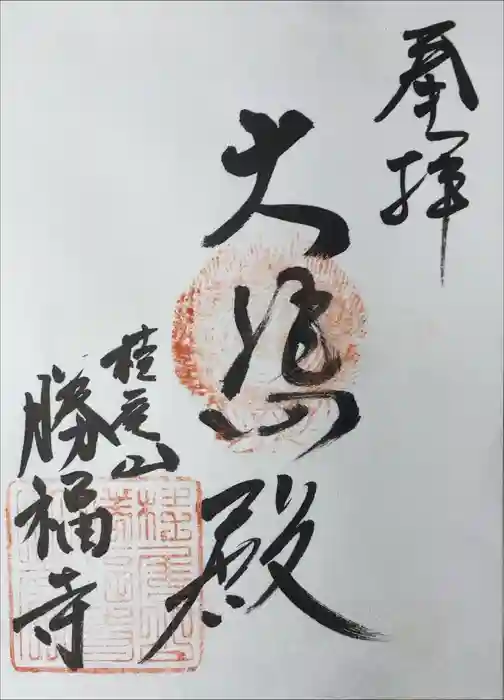 奉拝
大悲殿
桂定山
勝福寺